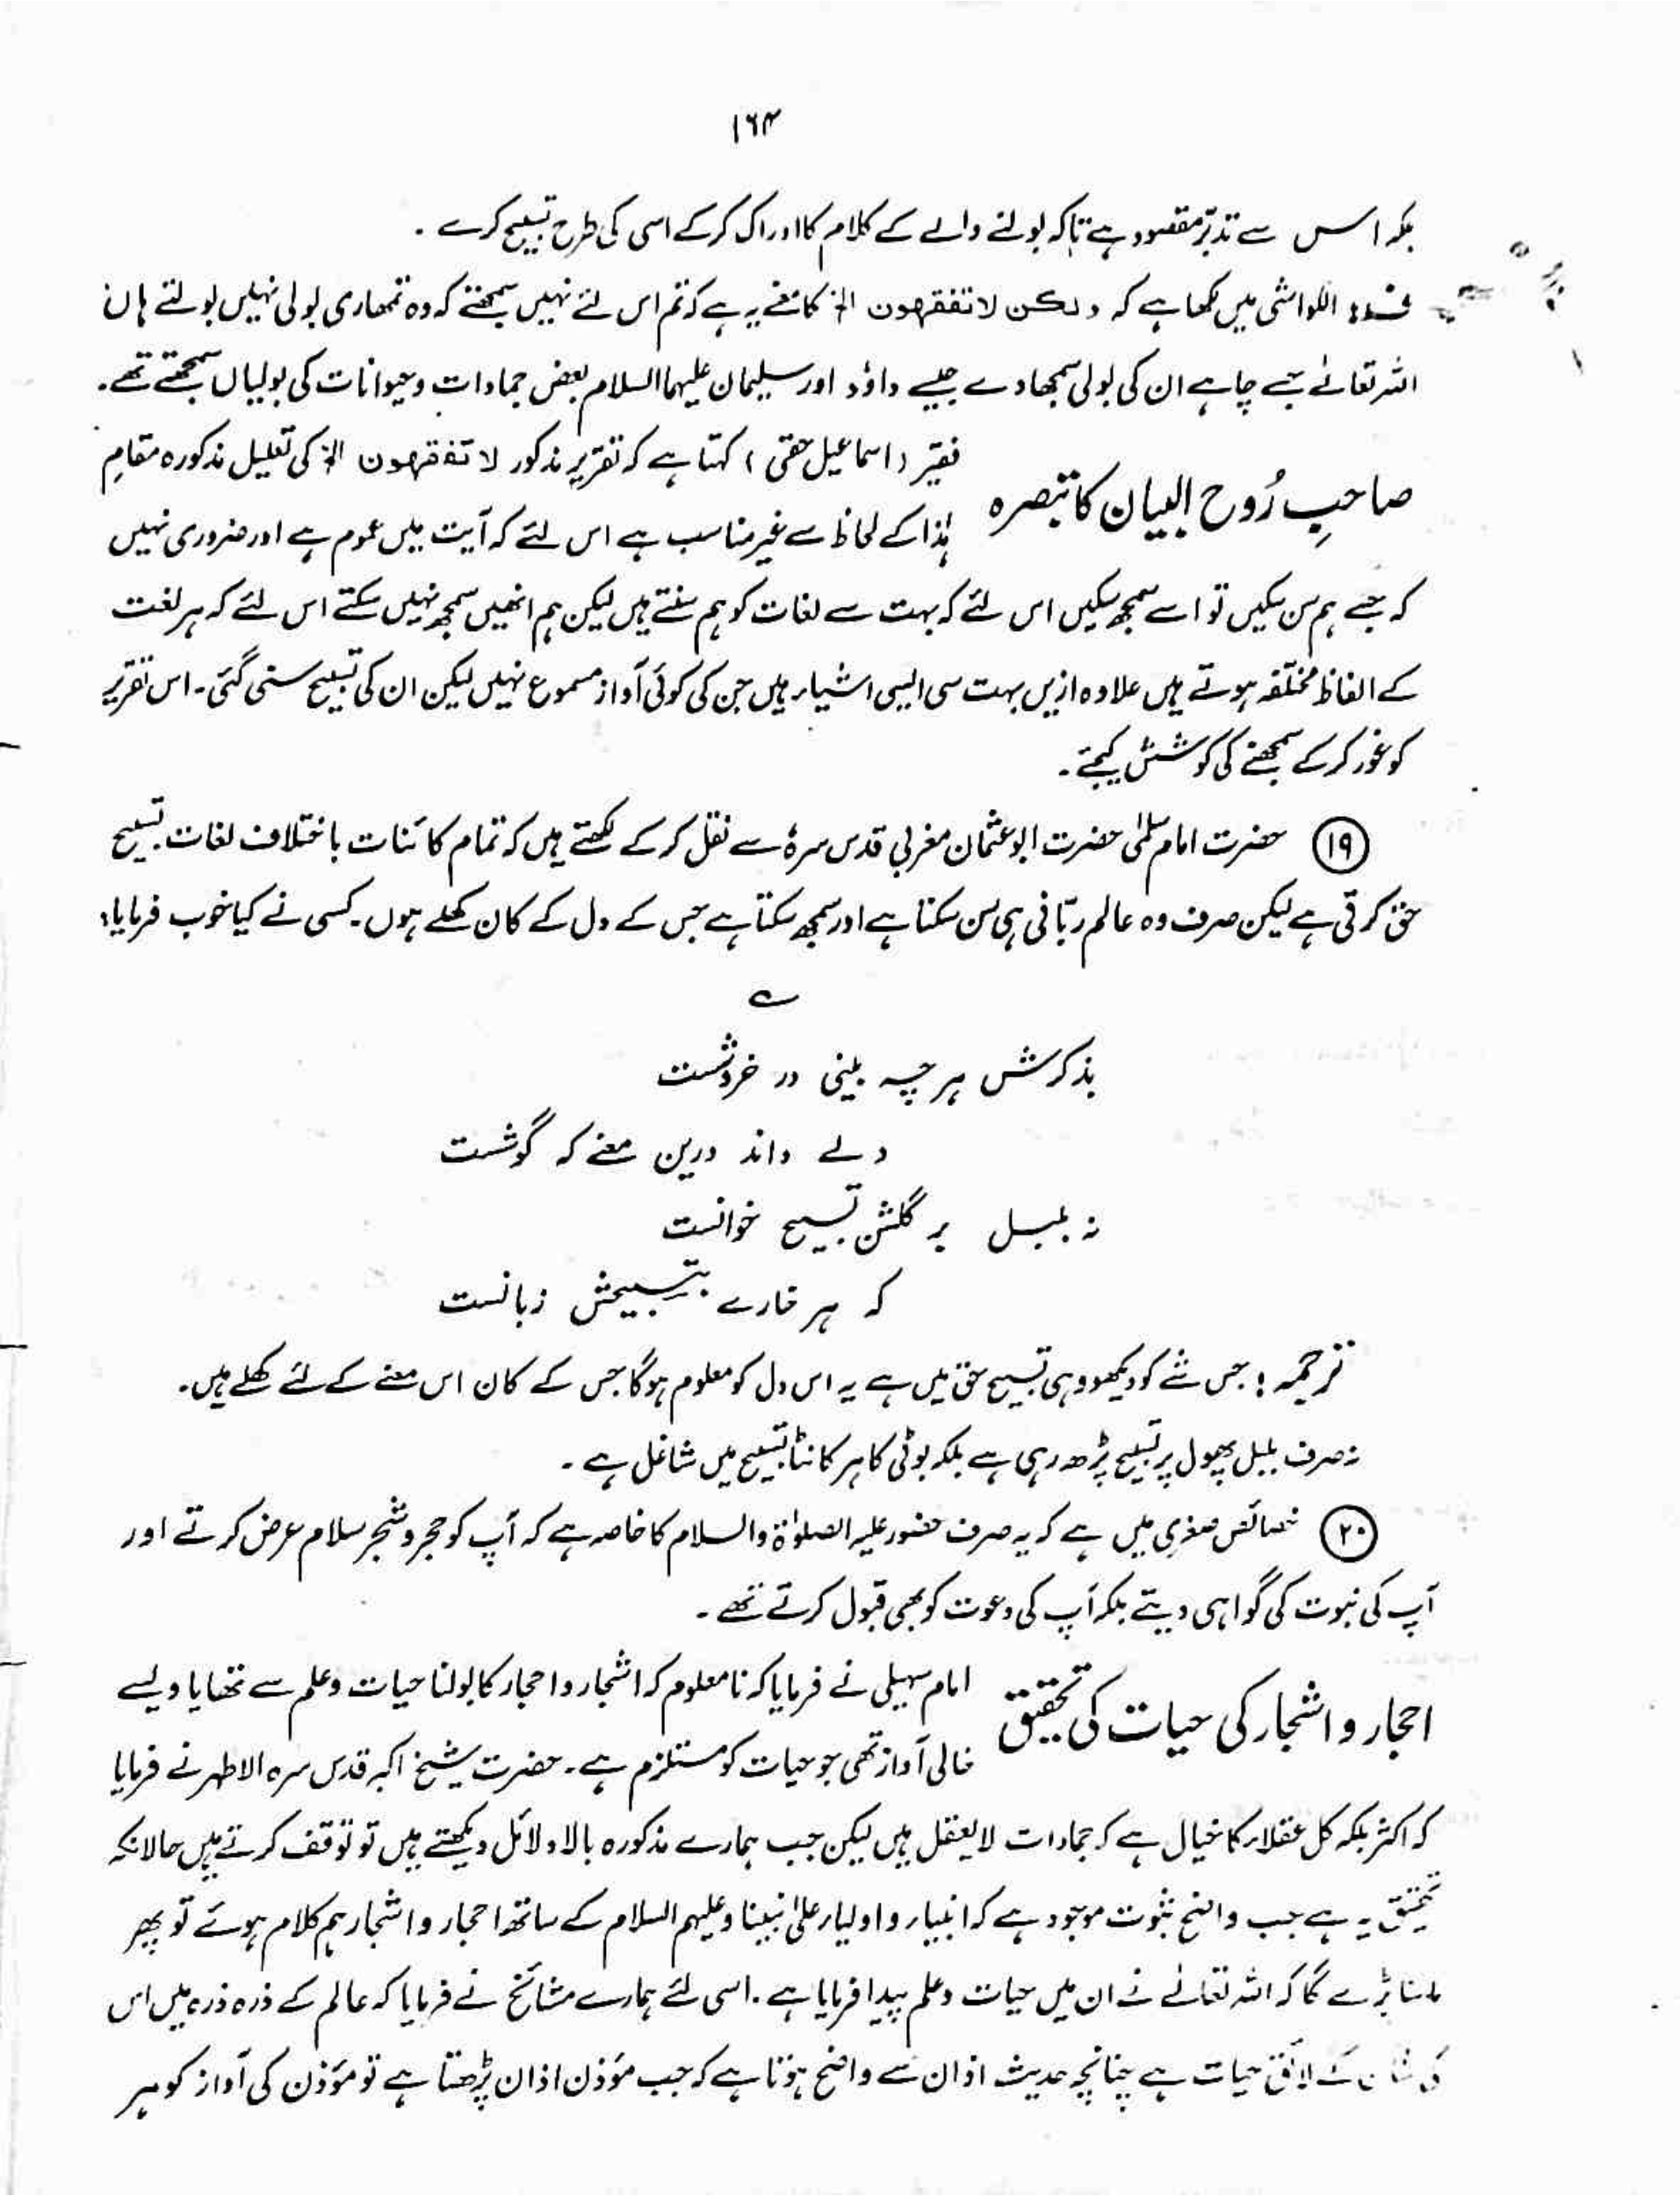 ۱۶۴
بلکہ اس سے تدبّر مقصود ہے تاکہ بولنے والے کے کلام کا ادراک کرکے اسی کی طرح تسبیح کرے ۔
ف: الکواشی میں لکھا ہے کہ ولکن لا تفقھون الخ کا معنٰے یہ ہے کہ تم اس لئے نہیں سمجھتے کہ وہ تمھاری بولی نہیں بولتے ہاں
اللہ تعالٰے جسے چاہے ان کی بولی سمجھا دے جیسے داؤد اور سلیمان علیہما السلام بعض جمادات و حیوانات کی بولیاں سمجھتے تھے۔
صاحبِ رُوح البیان کا تبصرہ
فقیر (اسماعیل حقی) کہتا ہے کہ تقریر مذکور لا تفقھون الخ کی تعلیل مذکورہ مقامِ
ہٰذا کے لحاظ سے غیر مناسب ہے اس لئے کہ آیت میں عموم ہے اور ضروری نہیں
کہ جسے ہم سن سکیں تو اسے سمجھ سکیں اس لئے کہ بہت سے لغات کو ہم سنتے ہیں لیکن ہم انھیں سمجھ نہیں سکتے اس لئے کہ ہر لغت
کے الفاظ مختلفہ ہوتے ہیں علاوہ ازیں بہت سی ایسی اشیاء ہیں جن کی کوئی آواز مسموع نہیں لیکن ان کی تسبیح سنی گئی۔ اس تقریر
کو غور کرکے سمجھنے کی کوشش کیجئے۔
(۱۹) حضرت امام سلمٰی حضرت ابو عثمان مغربی قدس سرہٗ سے نقل کرکے لکھتے ہیں کہ تمام کائنات باختلاف لغات تسبیح
حق کرتی ہے لیکن صرف وہ عالم ربّانی ہی سن سکتا ہے اور سمجھ سکتا ہے جس کے دل کے کان کھلے ہوں۔ کسی نے کیا خوب فرمایا:
؎
بذکرش ہر چہ بینی در خروشست
دلے داند درین معنے کہ گوشست
نہ بلبل بر گلشن تسبیح خوانست
کہ ہر خارے بتسبیحش زبانست
ترجمہ: جس شے کو دیکھو وہی تسبیح حق میں ہے یہ اس دل کو معلوم ہوگا جس کے کان اس معنے کے لئے کھلے ہیں۔
نہ صرف بلبل پھول پر تسبیح پڑھ رہی ہے بلکہ بوٹی کا ہر کانٹا تسبیح میں شاغل ہے۔
(۲۰) خصائص صغرٰی میں ہے کہ یہ صرف حضور علیہ الصلوٰۃ والسلام کا خاصہ ہے کہ آپ کو حجر و شجر سلام عرض کرتے اور
آپ کی نبوت کی گواہی دیتے بلکہ آپ کی دعوت کو بھی قبول کرتے تھے۔
احجار و اشجار کی حیات کی تحقیق
امام سہیلی نے فرمایا کہ نامعلوم کہ اشجار و احجار کا بولنا حیات و علم سے تھا یا ویسے
خالی آواز تھی جو حیات کو مستلزم ہے۔ حضرت شیخ اکبر قدس سرہ الاطہر نے فرمایا
کہ اکثر بلکہ کل عقلاء کا خیال ہے کہ جمادات لایعقل ہیں لیکن جب ہمارے مذکورہ بالا دلائل دیکھتے ہیں تو توقف کرتے ہیں حالانکہ
تحقیق یہ ہے جب واضح ثبوت موجود ہے کہ انبیاء و اولیاء علٰی نبینا وعلیہم السلام کے ساتھ احجار و اشجار ہم کلام ہوئے تو پھر
ماننا پڑے گا کہ اللہ تعالٰے نے ان میں حیات و علم پیدا فرمایا ہے۔ اسی لئے ہمارے مشائخ نے فرمایا کہ عالم کے ذرہ ذرہ میں اس
کی شان کے لائق حیات ہے چنانچہ حدیث اذان سے واضح ہوتا ہے کہ جب مؤذن اذان پڑھتا ہے تو مؤذن کی آواز کو ہر